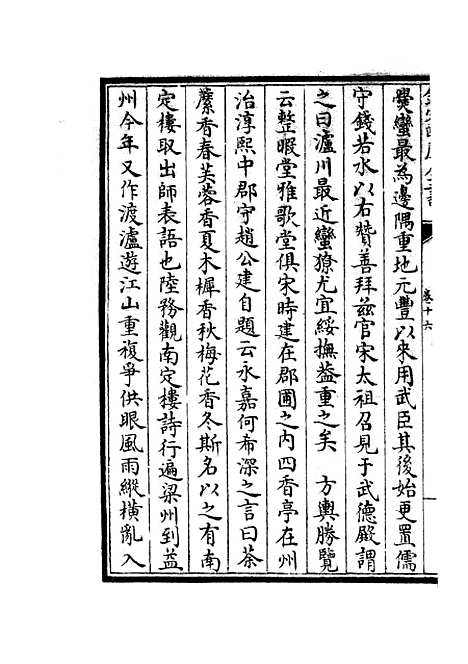 爨蠻最為邊隅重地元豐以來用武臣其後始更置儒
守錢若水以右贊善拜兹官宋太祖召見于武德殿謂
之曰瀘川最近蠻獠尤宜綏撫葢重之矣　方輿勝覽
云整暇堂雅歌堂俱宋時建在郡圃之内四香亭在州
治淳熙中郡守趙公建自題云永嘉何希深之言曰茶
䕷香春芙蓉香夏木樨香秋梅花香冬斯名以之有南
定樓取出師表語也陸務觀南定樓詩行遍梁州到益
州今年又作渡瀘遊江山重複爭供眼風雨縱橫亂入
卷十六